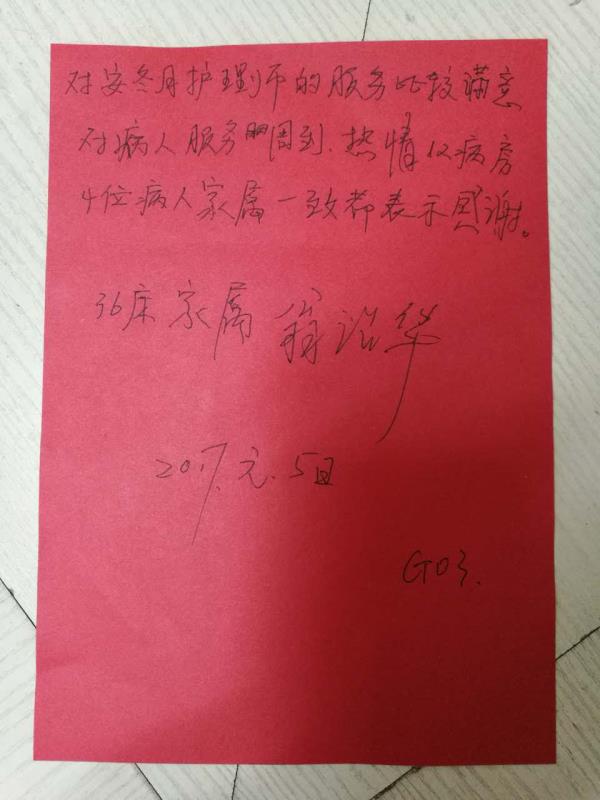 对安冬月护理师的服务比较满意
对病人服务周到.热情 12病房
4位病人家属一致都表示感谢。
36床家属 翁 华
2017.元.5日
G03.